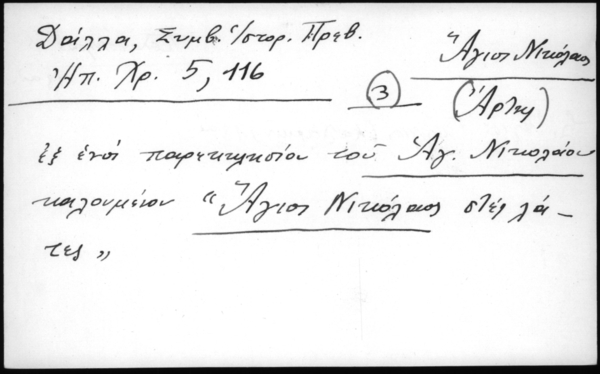 Δάλλα, Συμβ. Ἱστορ. Πρεβ.
Ἠπ. Χρ. 5, 116
Ἅγιος Νικόλαος
3
(Ἄρτης)
ἐξ ἑνός παρεκκλησίου τοῦ Ἁγ. Νικολάου
καλουμένου "Ἅγιος Νικόλαος στές λά-
τες"